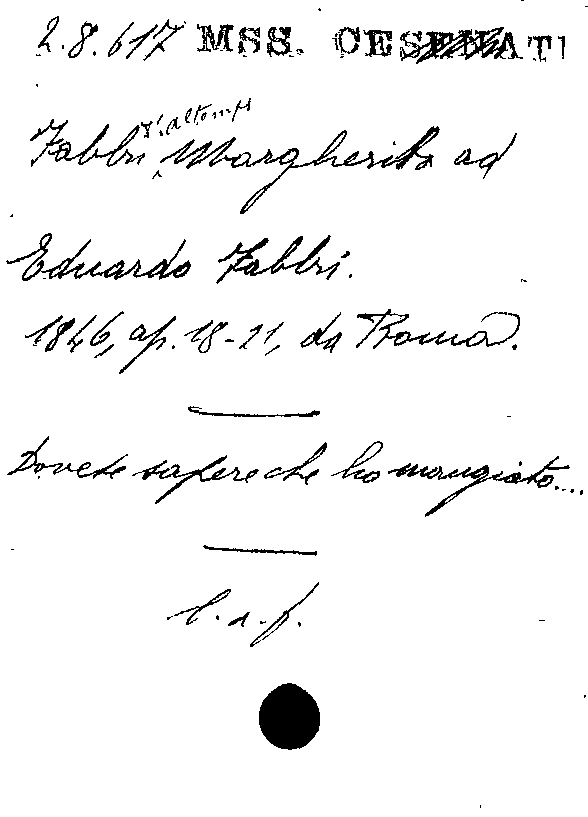 2.8.617 MSS. CESENATI
d'Altemps
Fabbri Margherita ad
Eduardo Fabbri.
1846, ap. 18-21, da Roma.
Dovete sapere che ho mangiato....
l.a.f.